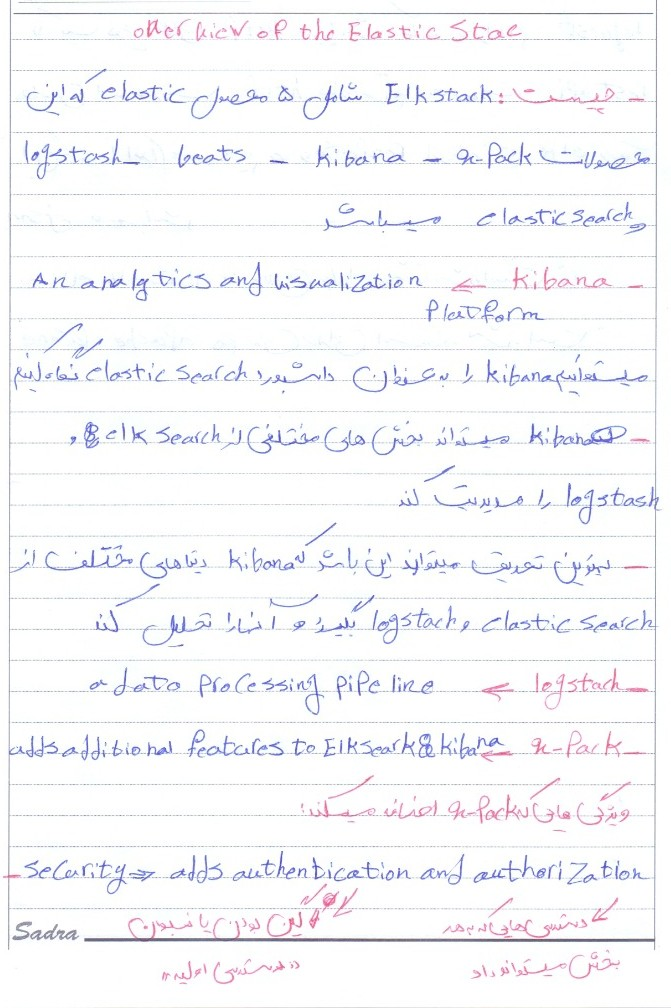 overview of the Elastic Stac
- چیست: Elk stack شامل ۵ محصول elastic که این
محصولات x-Pack - kibana - beats - logstash
و elastic search میباشد
- kibana ← An analytics and visualization
Platform
میتوانیم kibana را به عنوان داشبورد elastic search نگاه کنیم
- kibana میتواند بخش های مختلفی از elk search و
logstash را مدیریت کند
- بهترین تعریف میتواند این باشد که kibana دیتاهای مختلف از
elastic search و logstach بگیرد و آنهارا تحلیل کند
- logstach ← a data processing pipeline
- x-Pack ← adds additional features to Elk seark & kibana
ویژگی هایی که x-Pack اضافه میکند:
- Security ⇒ adds authentication and authorization
لاگین بودن یا نبودن
دسترسی هایی که به هر
Sadra
دسترسی اولیه
بخش میتوان داد